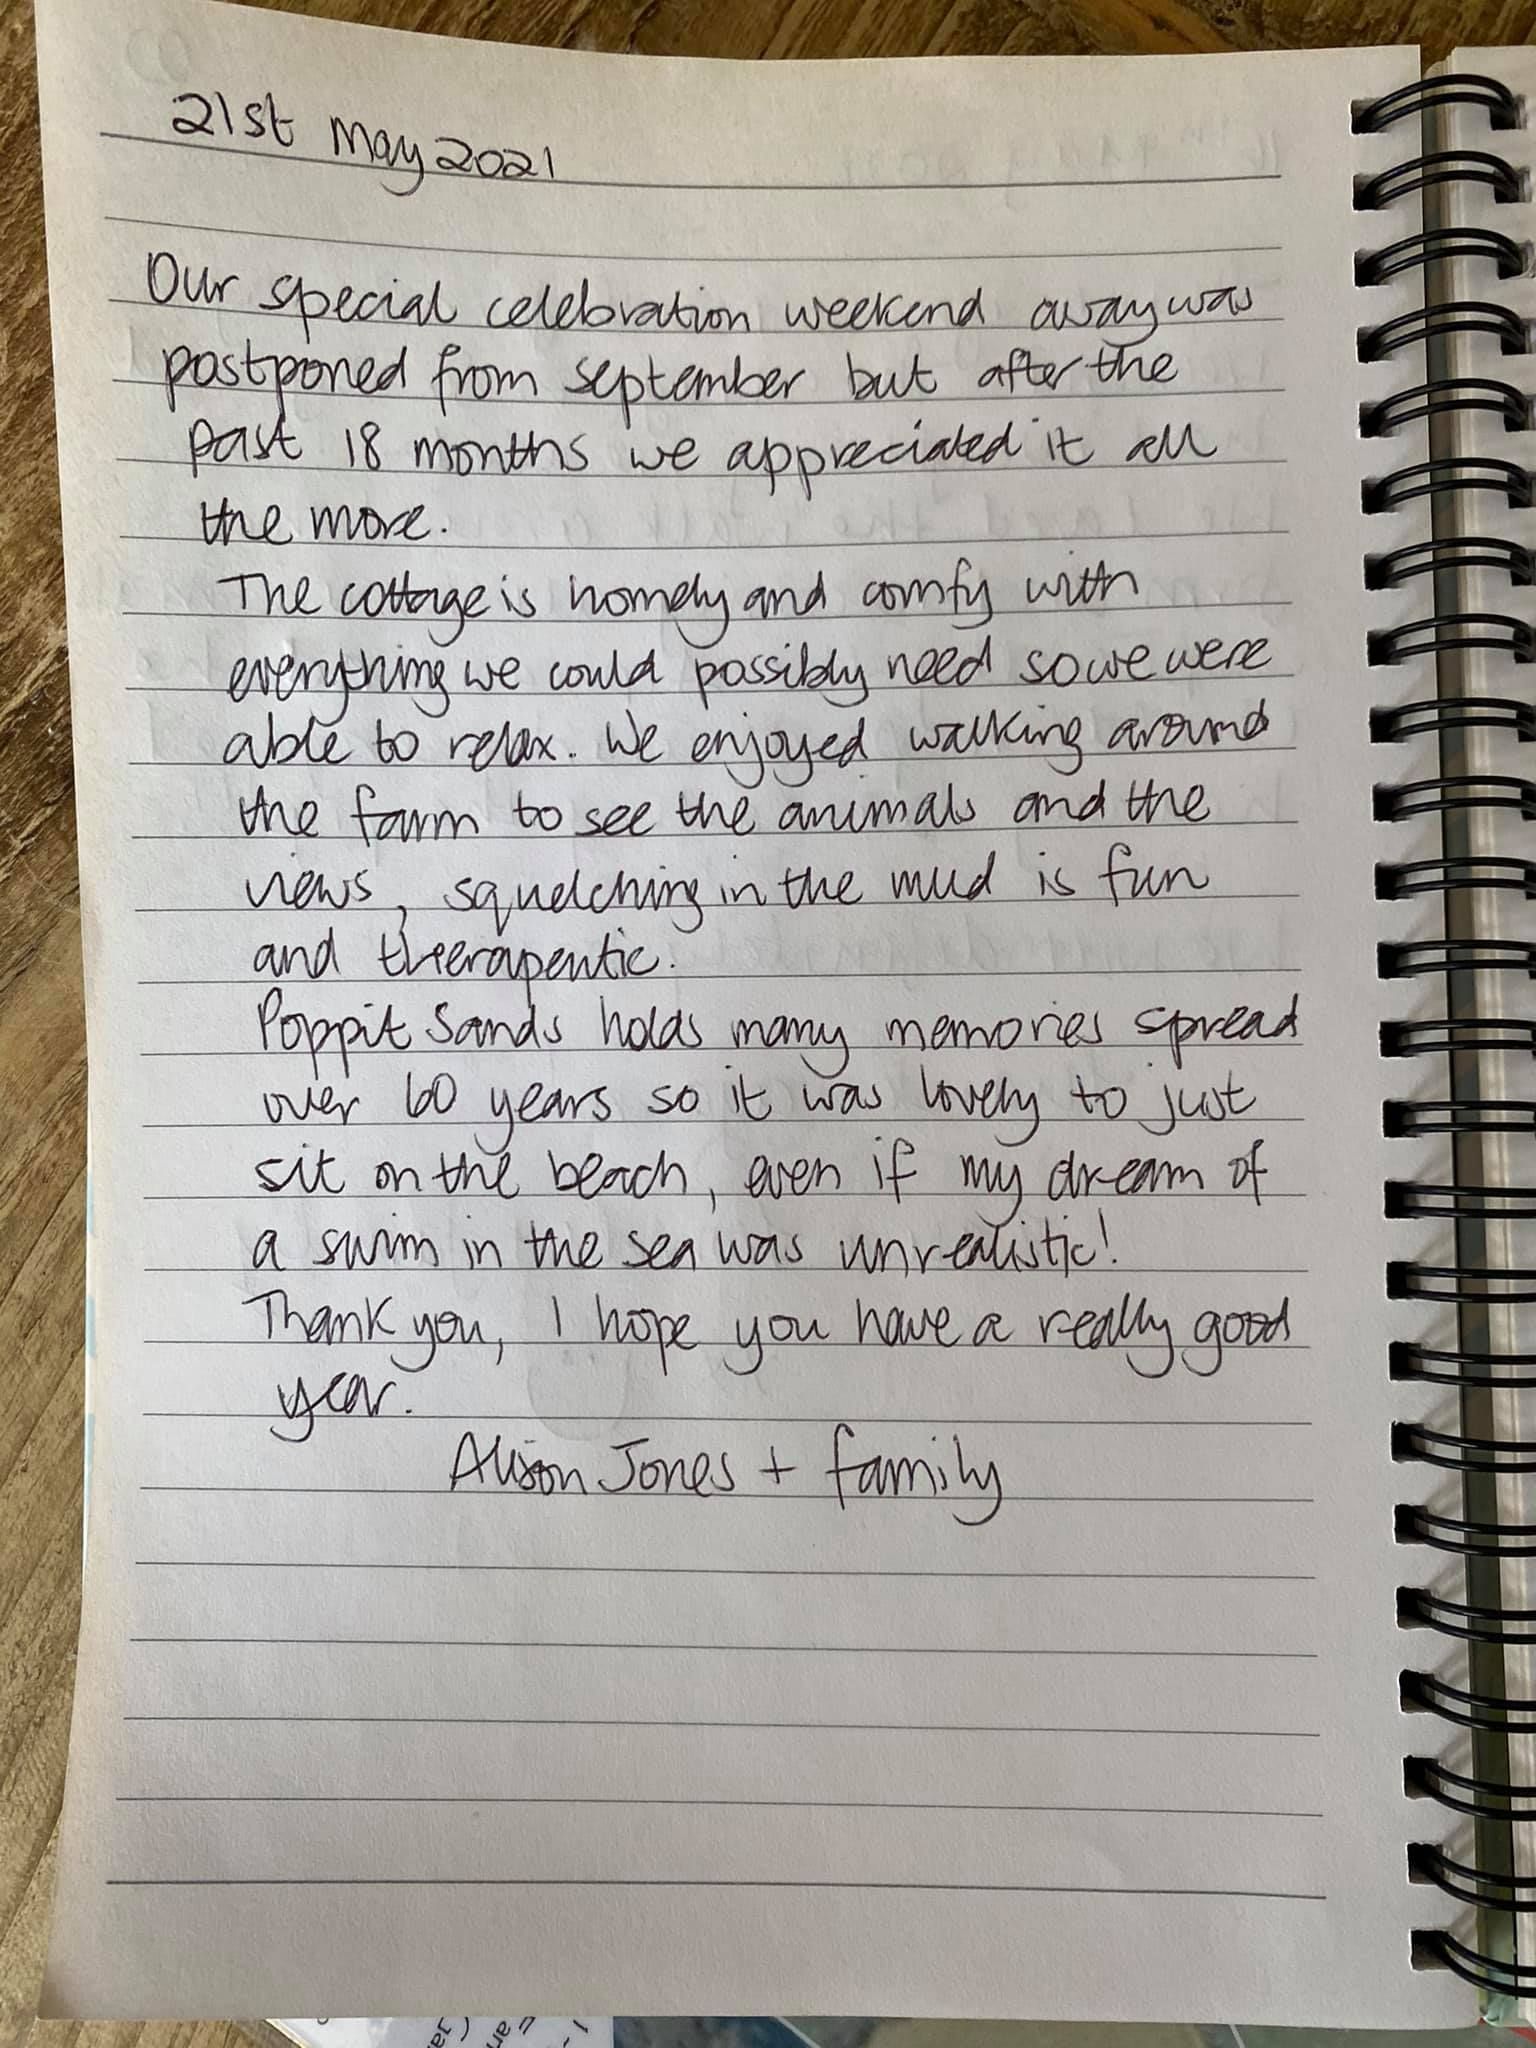 21st May 2021
Our special celebration weekend away was
postponed from September but after the
past 18 months we appreciated it all
the more.
The cottage is homely and comfy with
everything we could possibly need so we were
able to relax. We enjoyed walking around
the farm to see the animals and the
views, squelching in the mud is fun
and therapeutic.
Poppit Sands holds many memories spread
over 60 years so it was lovely to just
sit on the beach, even if my dream of
a swim in the sea was unrealistic!
Thank you, I hope you have a really good
year.
Alison Jones + family